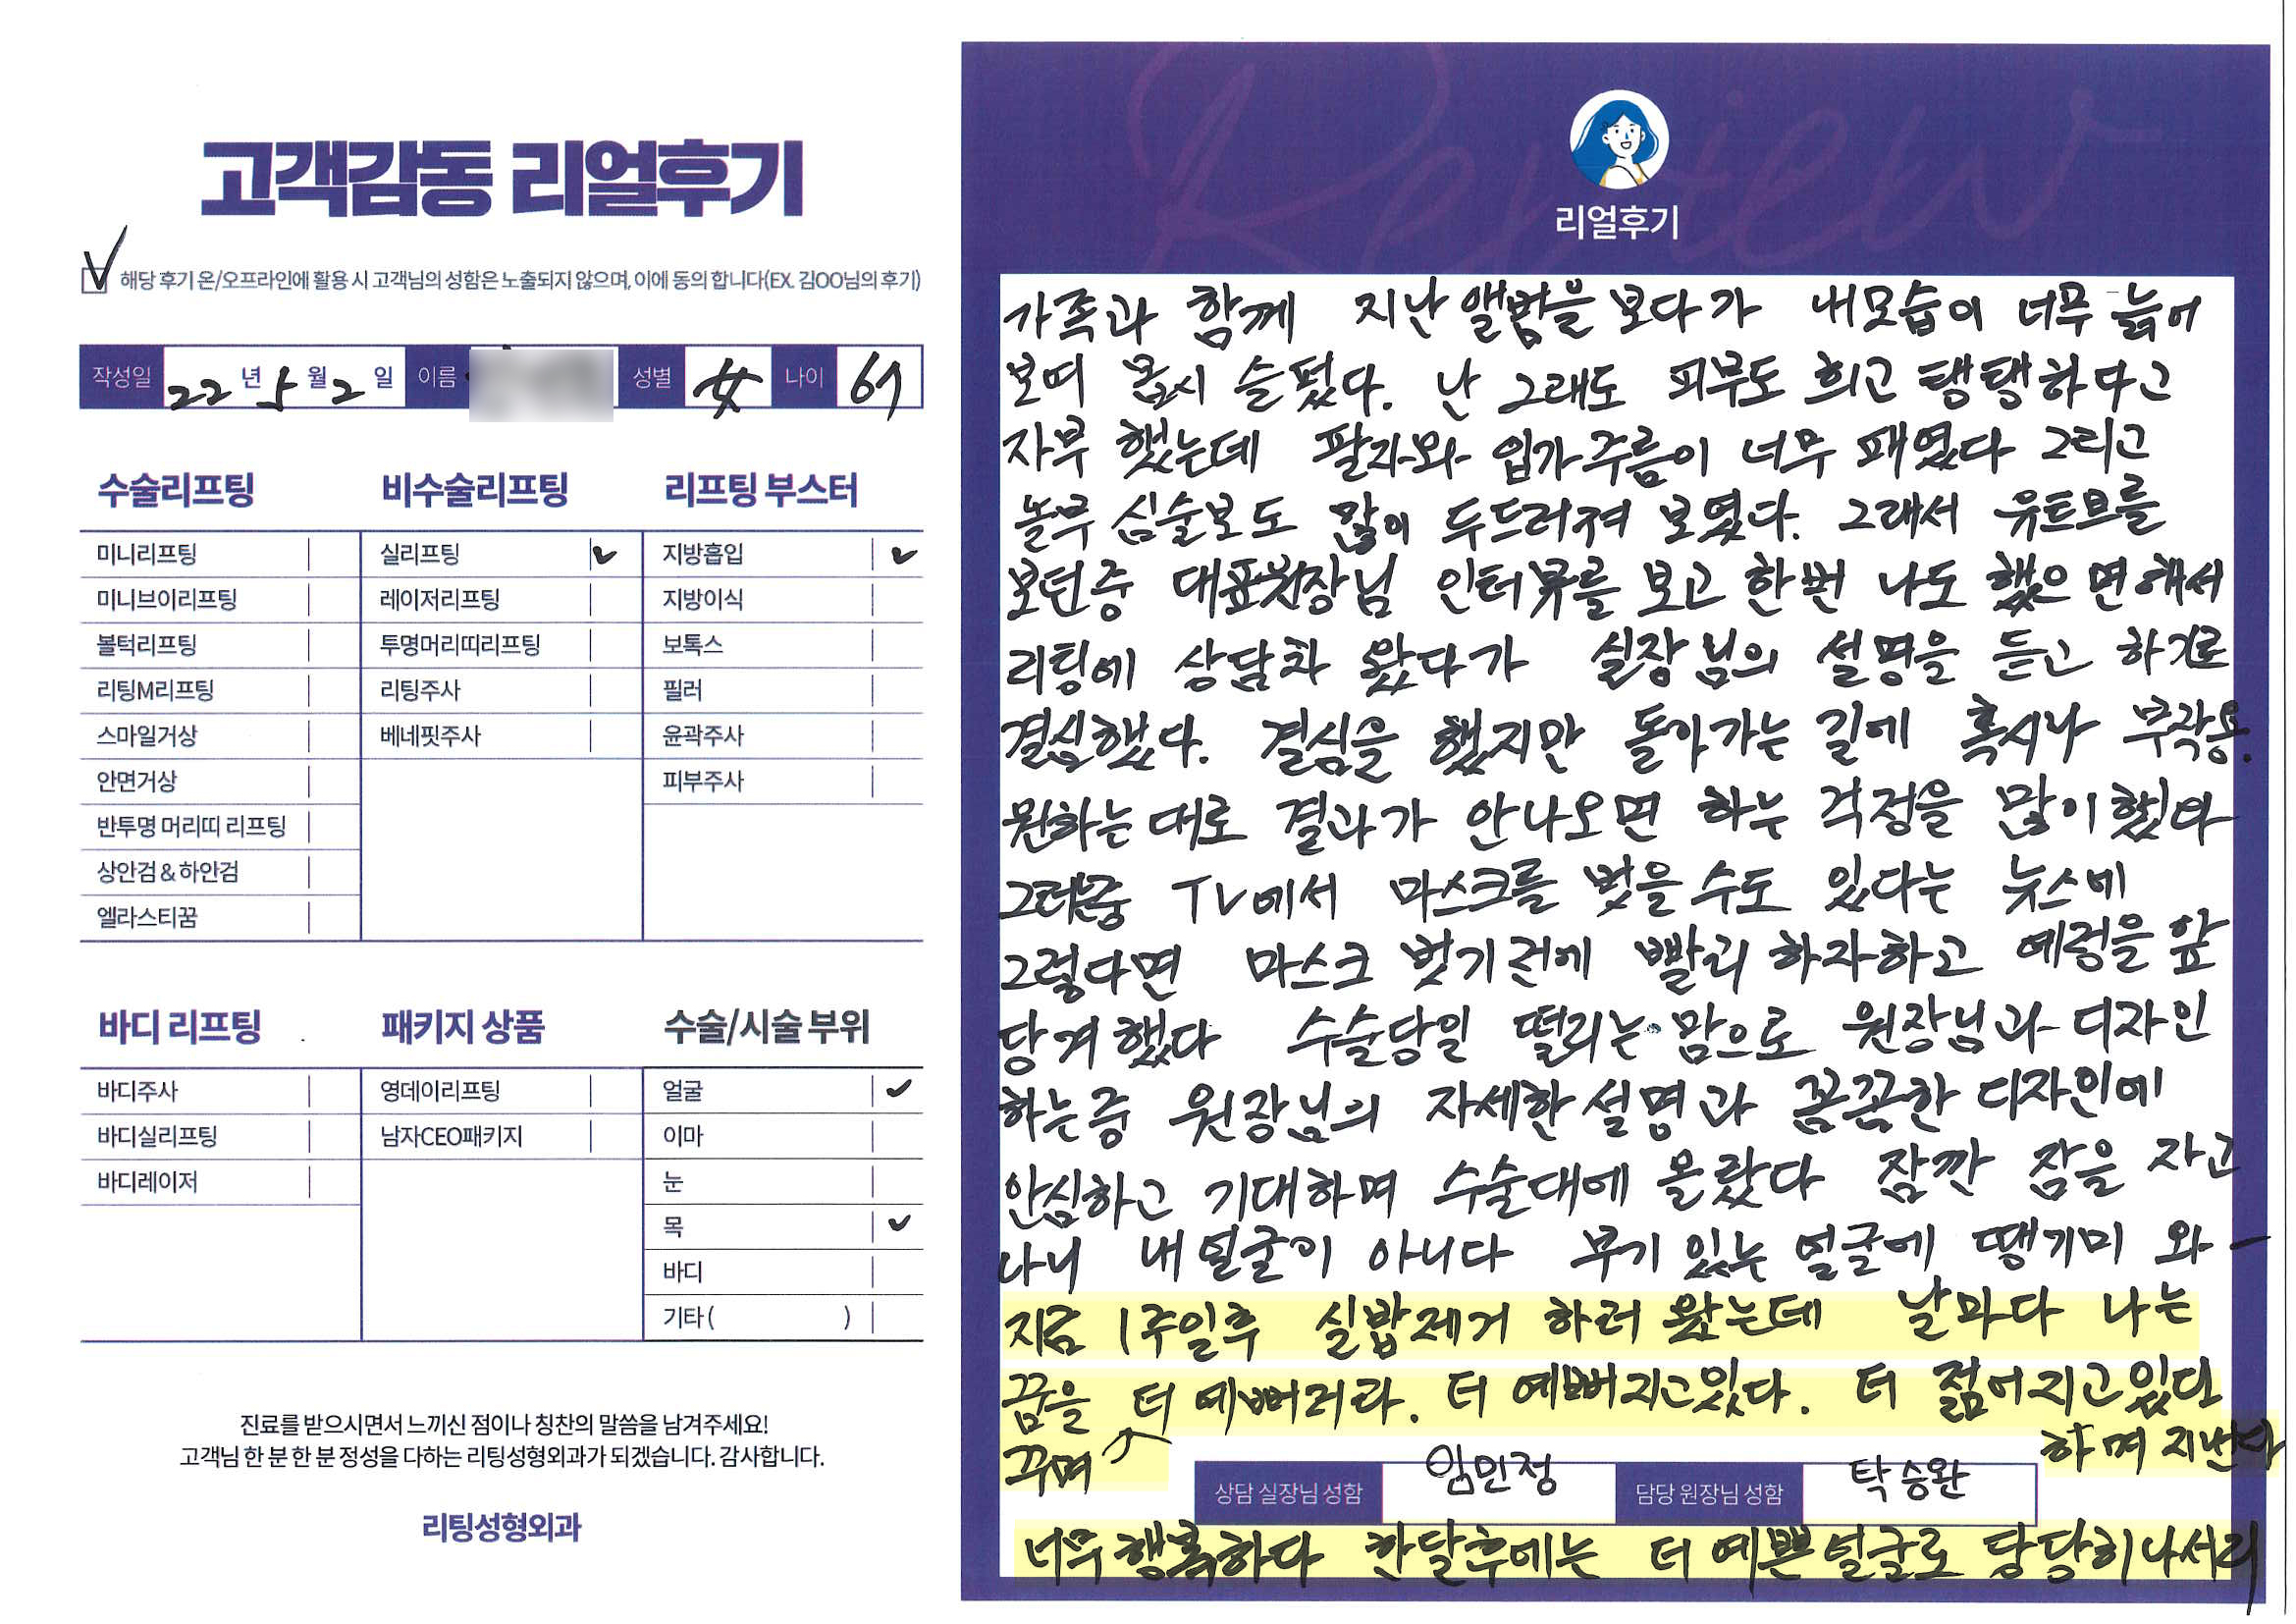 고객감동 리얼후기
해당 후기 온/오프라인에 활용 시 고객님의 성함은 노출되지 않으며, 이에 동의 합니다(EX. 김OO님의 후기)
작성일 22 년 5 월 2 일 이름 성별 女 나이 61
수술리프팅
미니리프팅
미니브이리프팅
볼턱리프팅
리팅M리프팅
스마일거상
안면거상
반투명 머리띠 리프팅
상안검 & 하안검
엘라스티꿈
비수술리프팅
실리프팅
레이저리프팅
투명머리띠리프팅
리팅주사
베네핏주사
리프팅 부스터
지방흡입
지방이식
보톡스
필러
윤곽주사
피부주사
바디 리프팅
바디주사
바디실리프팅
바디레이저
패키지 상품
영데이리프팅
남자CEO패키지
수술/시술 부위
얼굴
이마
눈
목
바디
기타 ( )
진료를 받으시면서 느끼신 점이나 칭찬의 말씀을 남겨주세요!
고객님 한 분 한 분 정성을 다하는 리팅성형외과가 되겠습니다. 감사합니다.
리팅성형외과
Review
리얼후기
가족과 함께 지난 앨범을 보다가 내모습이 너무 늙어
보여 몹시 슬펐다. 난 그래도 피부도 희고 탱탱하다고
자부 했는데 팔자와 입가 주름이 너무 패였다 그리고
놀부 심술보도 많이 두드러져 보였다. 그래서 유트브를
보던중 대표원장님 인터뷰를 보고 한번 나도 했으면해서
리팅에 상담차 왔다가 실장님의 설명을 듣고 하기로
결심했다. 결심을 했지만 돌아가는 길에 혹시나 부작용.
원하는 대로 결과가 안나오면 하는 걱정을 많이 했다
그러던중 TV에서 마스크를 벗을 수도 있다는 뉴스에
그렇다면 마스크 벗기전에 빨리 하자하고 예정을 앞
당겨 했다 수술당일 떨리는 맘으로 원장님과 디자인
하는중 원장님의 자세한 설명과 꼼꼼한 디자인에
안심하고 기대하며 수술대에 올랐다 잠깐 잠을 자고
나니 내 얼굴이 아니다 부기 있는 얼굴에 땡기미 와-
지금 1주일후 실밥제거 하러 왔는데 날마다 나는
꿈을 더 예뻐져라. 더 예뻐지고있다. 더 젊어지고있다
꾸며 하며 지낸다
상담 실장님 성함 임민정 담당 원장님 성함 탁승완
너무 행복하다 한달후에는 더 예쁜 얼굴로 당당히나서리